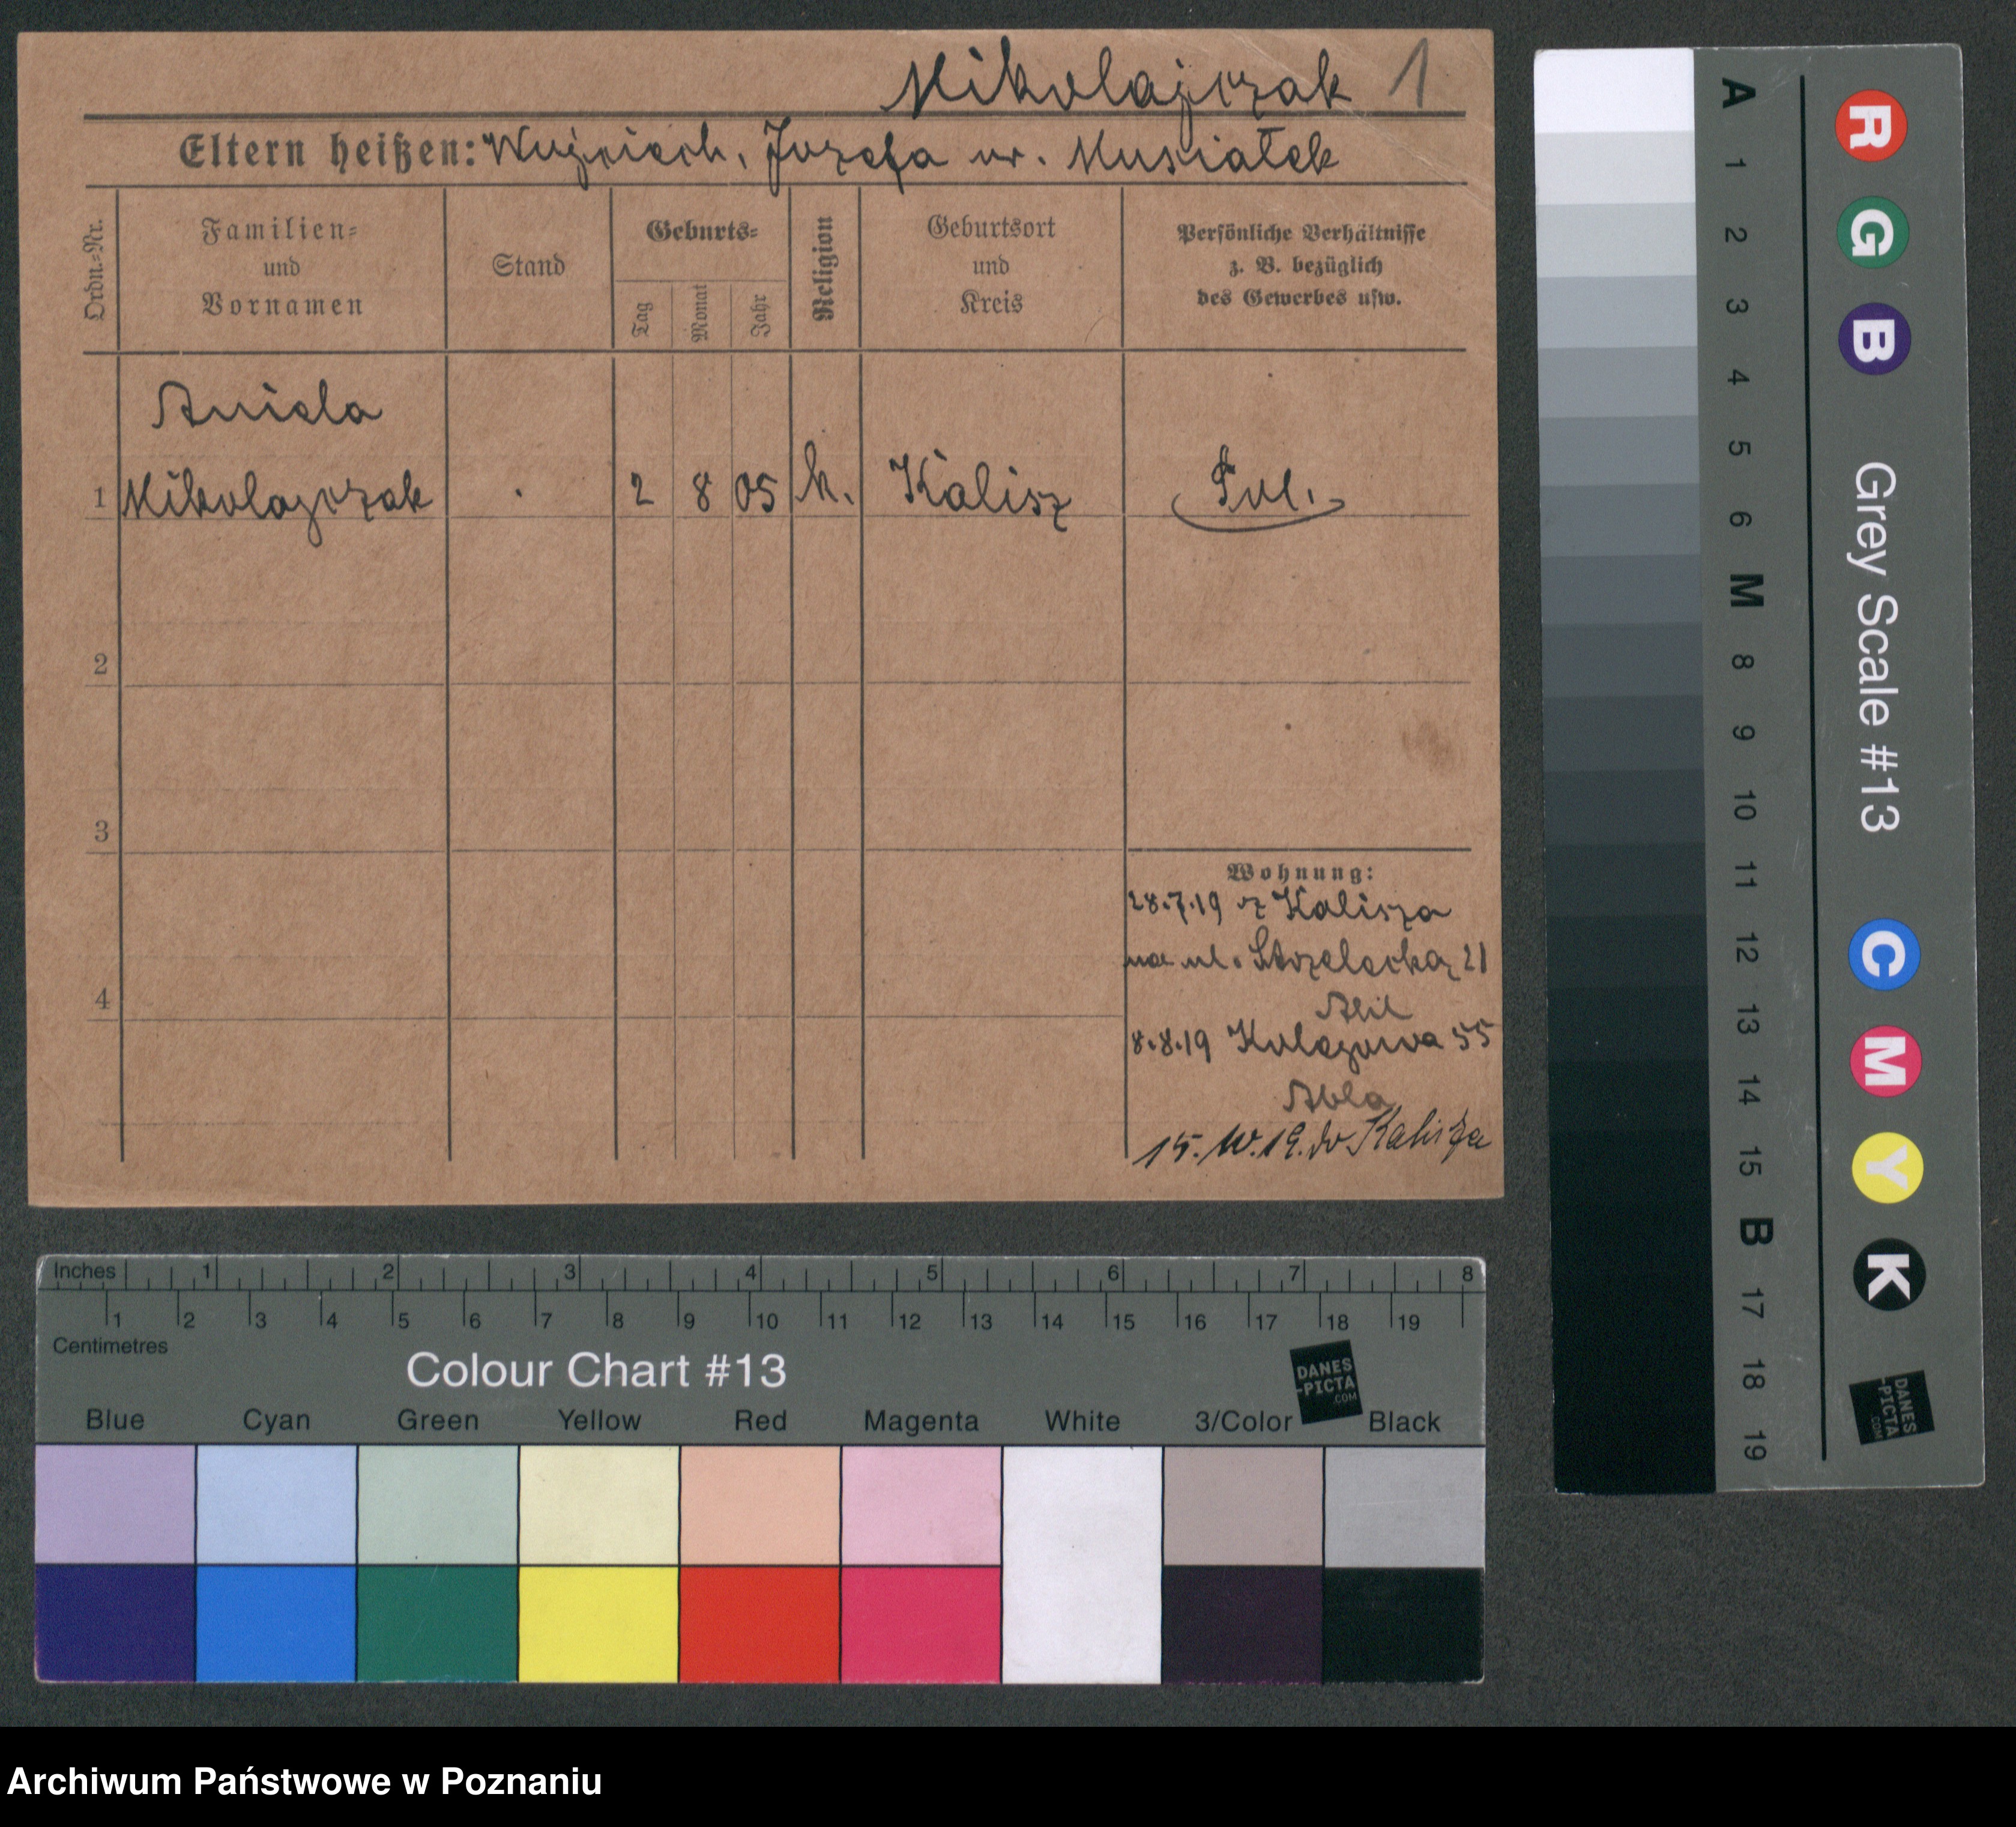 Mikolajczak 1
Eltern heißen: Wojciech, Jozefa ur. Musiałek
Ordn.-Nr.
Familien-
und
Vornamen
Stand
Geburts-
Tag
Monat
Jahr
Religion
Geburtsort
und
Kreis
Persönliche Verhältnisse
z. B. bezüglich
des Gewerbes usw.
Aniela
1 Mikolajczak . 2 8 05 k. Kalisz Pol.
2
3
4
Wohnung:
28.7.19 z Kalisza
na ul. Strzelecka 21
8.8.19 Kolejowa 55
15. 10. 19. do Kalisza
A 1 2 3 4 5 6 M 8 9 10 11 12 13 14 15 B 17 18 19
R G B
Grey Scale #13
C M Y K
DANES
-PICTA
.COM
Inches 1 2 3 4 5 6 7 8
1 2 3 4 5 6 7 8 9 10 11 12 13 14 15 16 17 18 19
Centimetres
Colour Chart #13
DANES
-PICTA
.COM
Blue Cyan Green Yellow Red Magenta White 3/Color Black
Archiwum Państwowe w Poznaniu